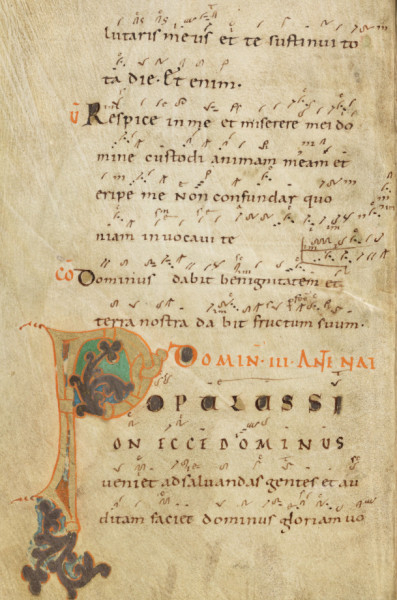 lutaris meus et te sustinui to
ta die. Et enim.
V Respice in me et miserere mei do
mine custodi animam meam et
eripe me Non confundar quo
niam invocavi te
CO Dominus dabit benignitatem et
terra nostra dabit fructum suum.
DOMIN · III · ANT NAT
POPULUS SI
ON ECCE DOMINUS
veniet ad salvandas gentes et au
ditam faciet dominus gloriam vo